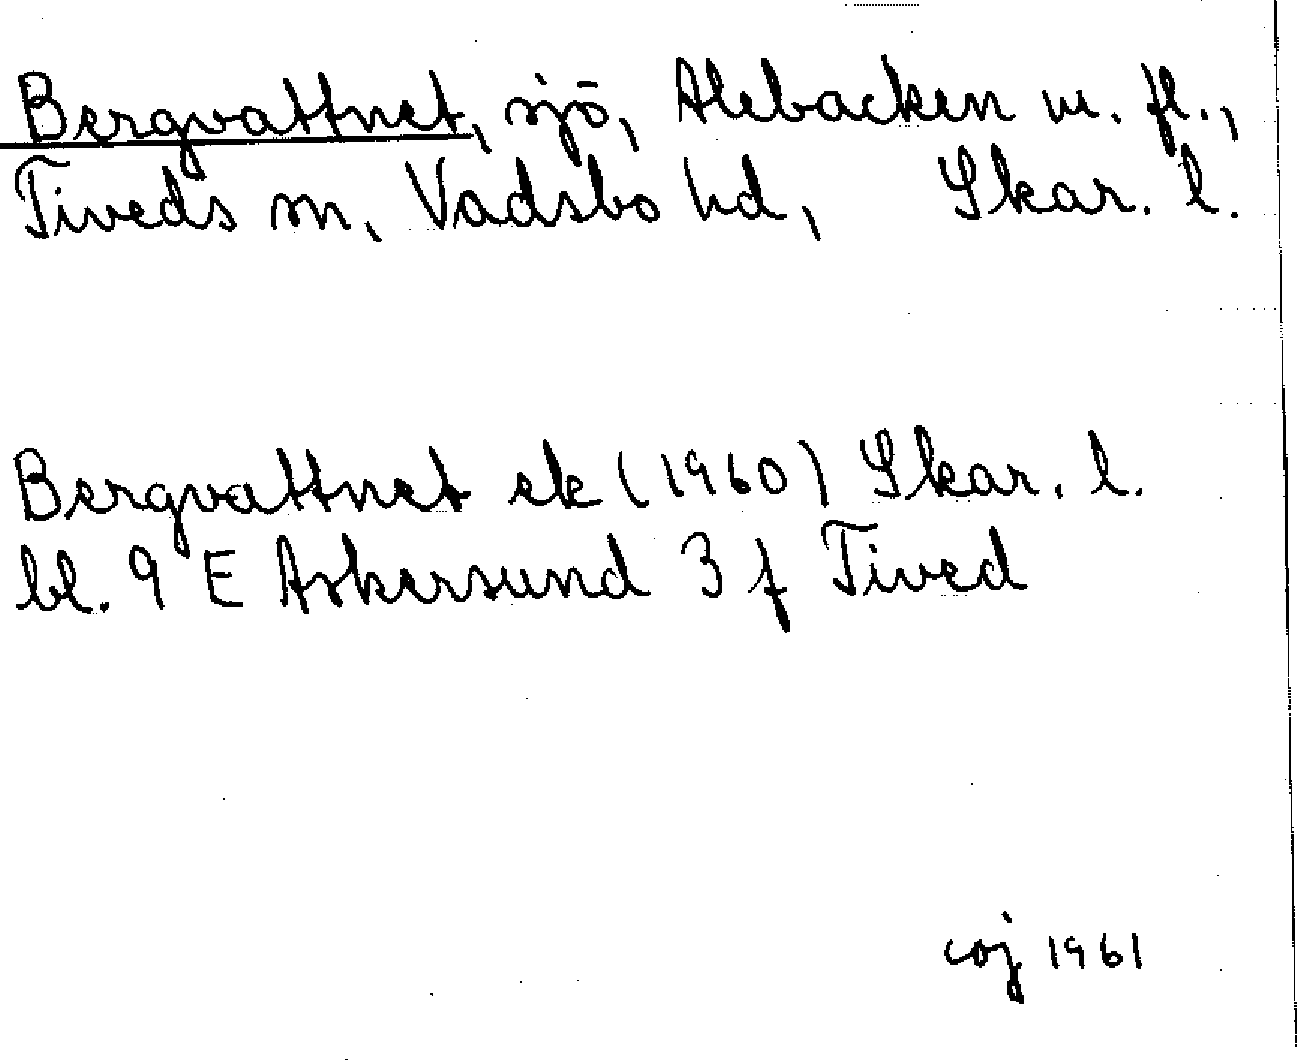 Bergvattnet, sjö, Alebacken m. fl.,
Tiveds sn, Vadsbo hd, Skar. l.
Bergvattnet ek (1960) Skar. l.
bl. 9 E Askersund 3 f Tived
coj 1961